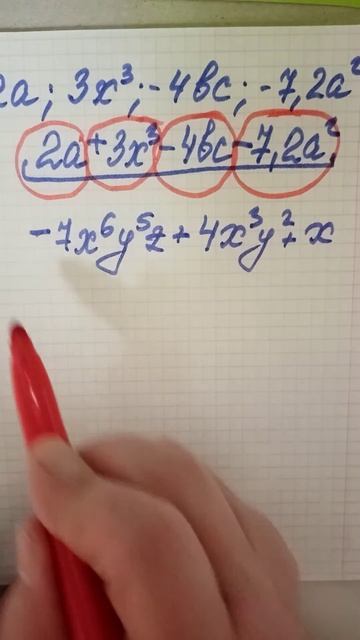 2a; 3x³; -4bc; -7,2a²
2a+3x³-4bc-7,2a²
-7x⁶y⁵z+4x³y²+x